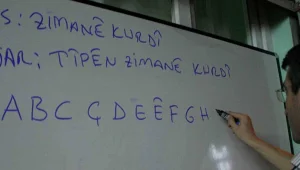 S: ZIMANÊ KURDÎ
JAR: TÎPÊN ZIMANÊ KURDÎ
A B C Ç D E Ê F G H